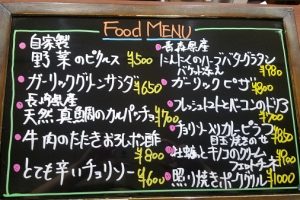 Food MENU
自家製
野菜のピクルス ¥500
ガーリックグリーンサラダ ¥650
長崎県産
天然真鯛のカルパッチョ ¥700
牛肉のたたきおろしポン酢 ¥800
とても辛いチョリソー ¥600
青森県産
にんにくのハーブバタグラタン
バケット ¥980
ガーリックピザ ¥800
フレッシュトマトとベーコンのドリア ¥700
チョリソー入りカレーピラフ
目玉焼きのせ ¥850
牡蠣とキノコのクリーム
フェットチーネ
照り焼きポークグリル ¥1000